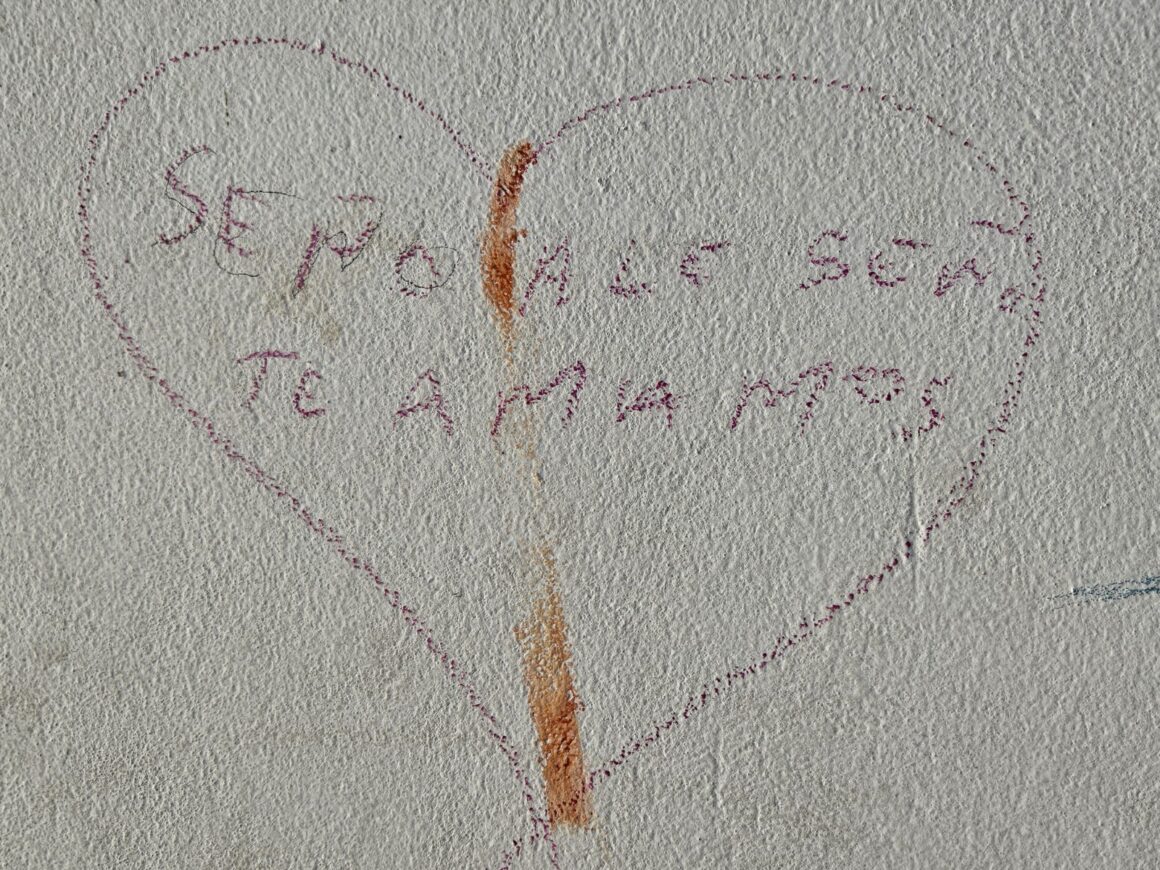 SEÑO ALE SEÑO
TE AMAMOS